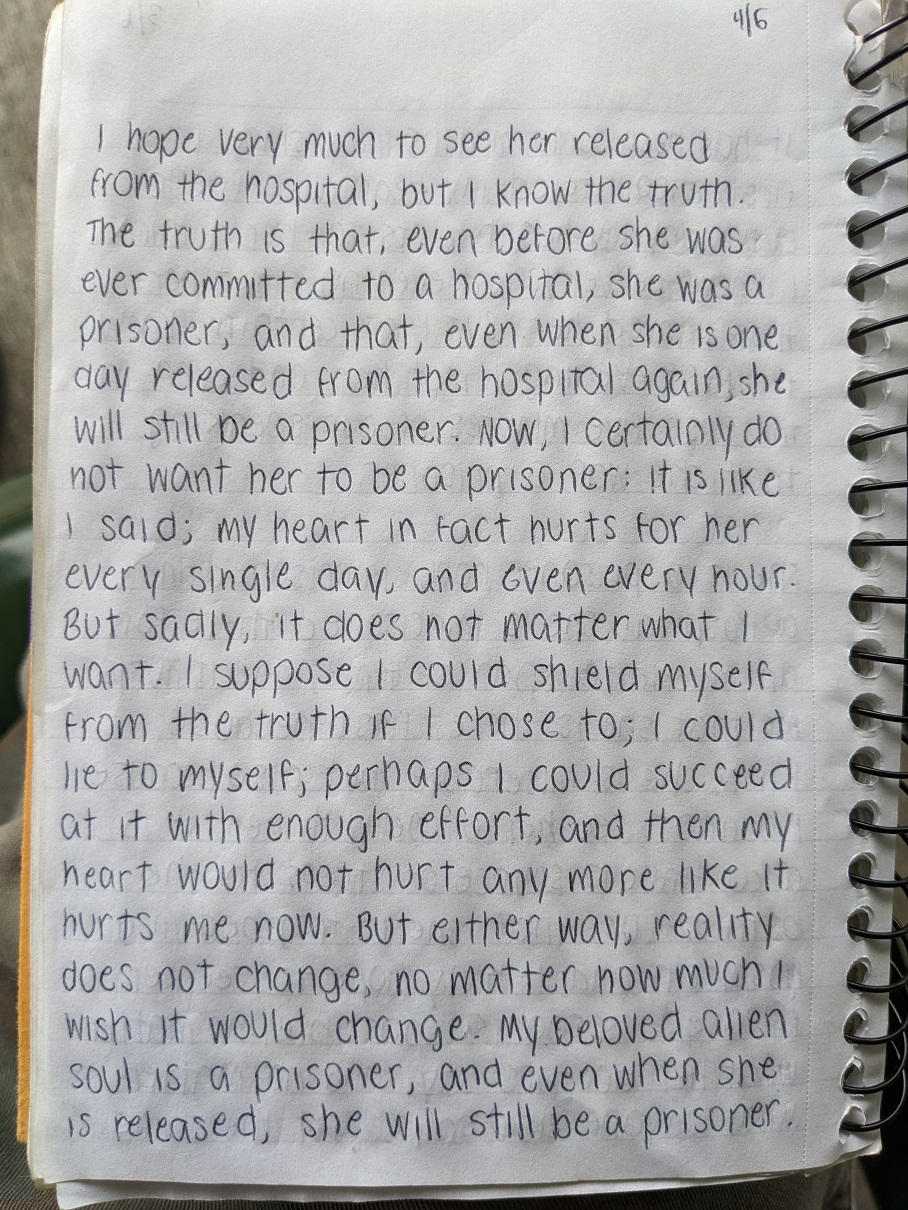 4/6
I hope very much to see her released
from the hospital, but I know the truth.
The truth is that, even before she was
ever committed to a hospital, she was a
prisoner, and that, even when she is one
day released from the hospital again, she
will still be a prisoner. Now, I certainly do
not want her to be a prisoner: it is like
I said; my heart in fact hurts for her
every single day, and even every hour.
But sadly, it does not matter what I
want. I suppose I could shield myself
from the truth if I chose to; I could
lie to myself; perhaps I could succeed
at it with enough effort, and then my
heart would not hurt any more like it
hurts me now. But either way, reality
does not change, no matter how much I
wish it would change. My beloved alien
soul is a prisoner, and even when she
is released, she will still be a prisoner.